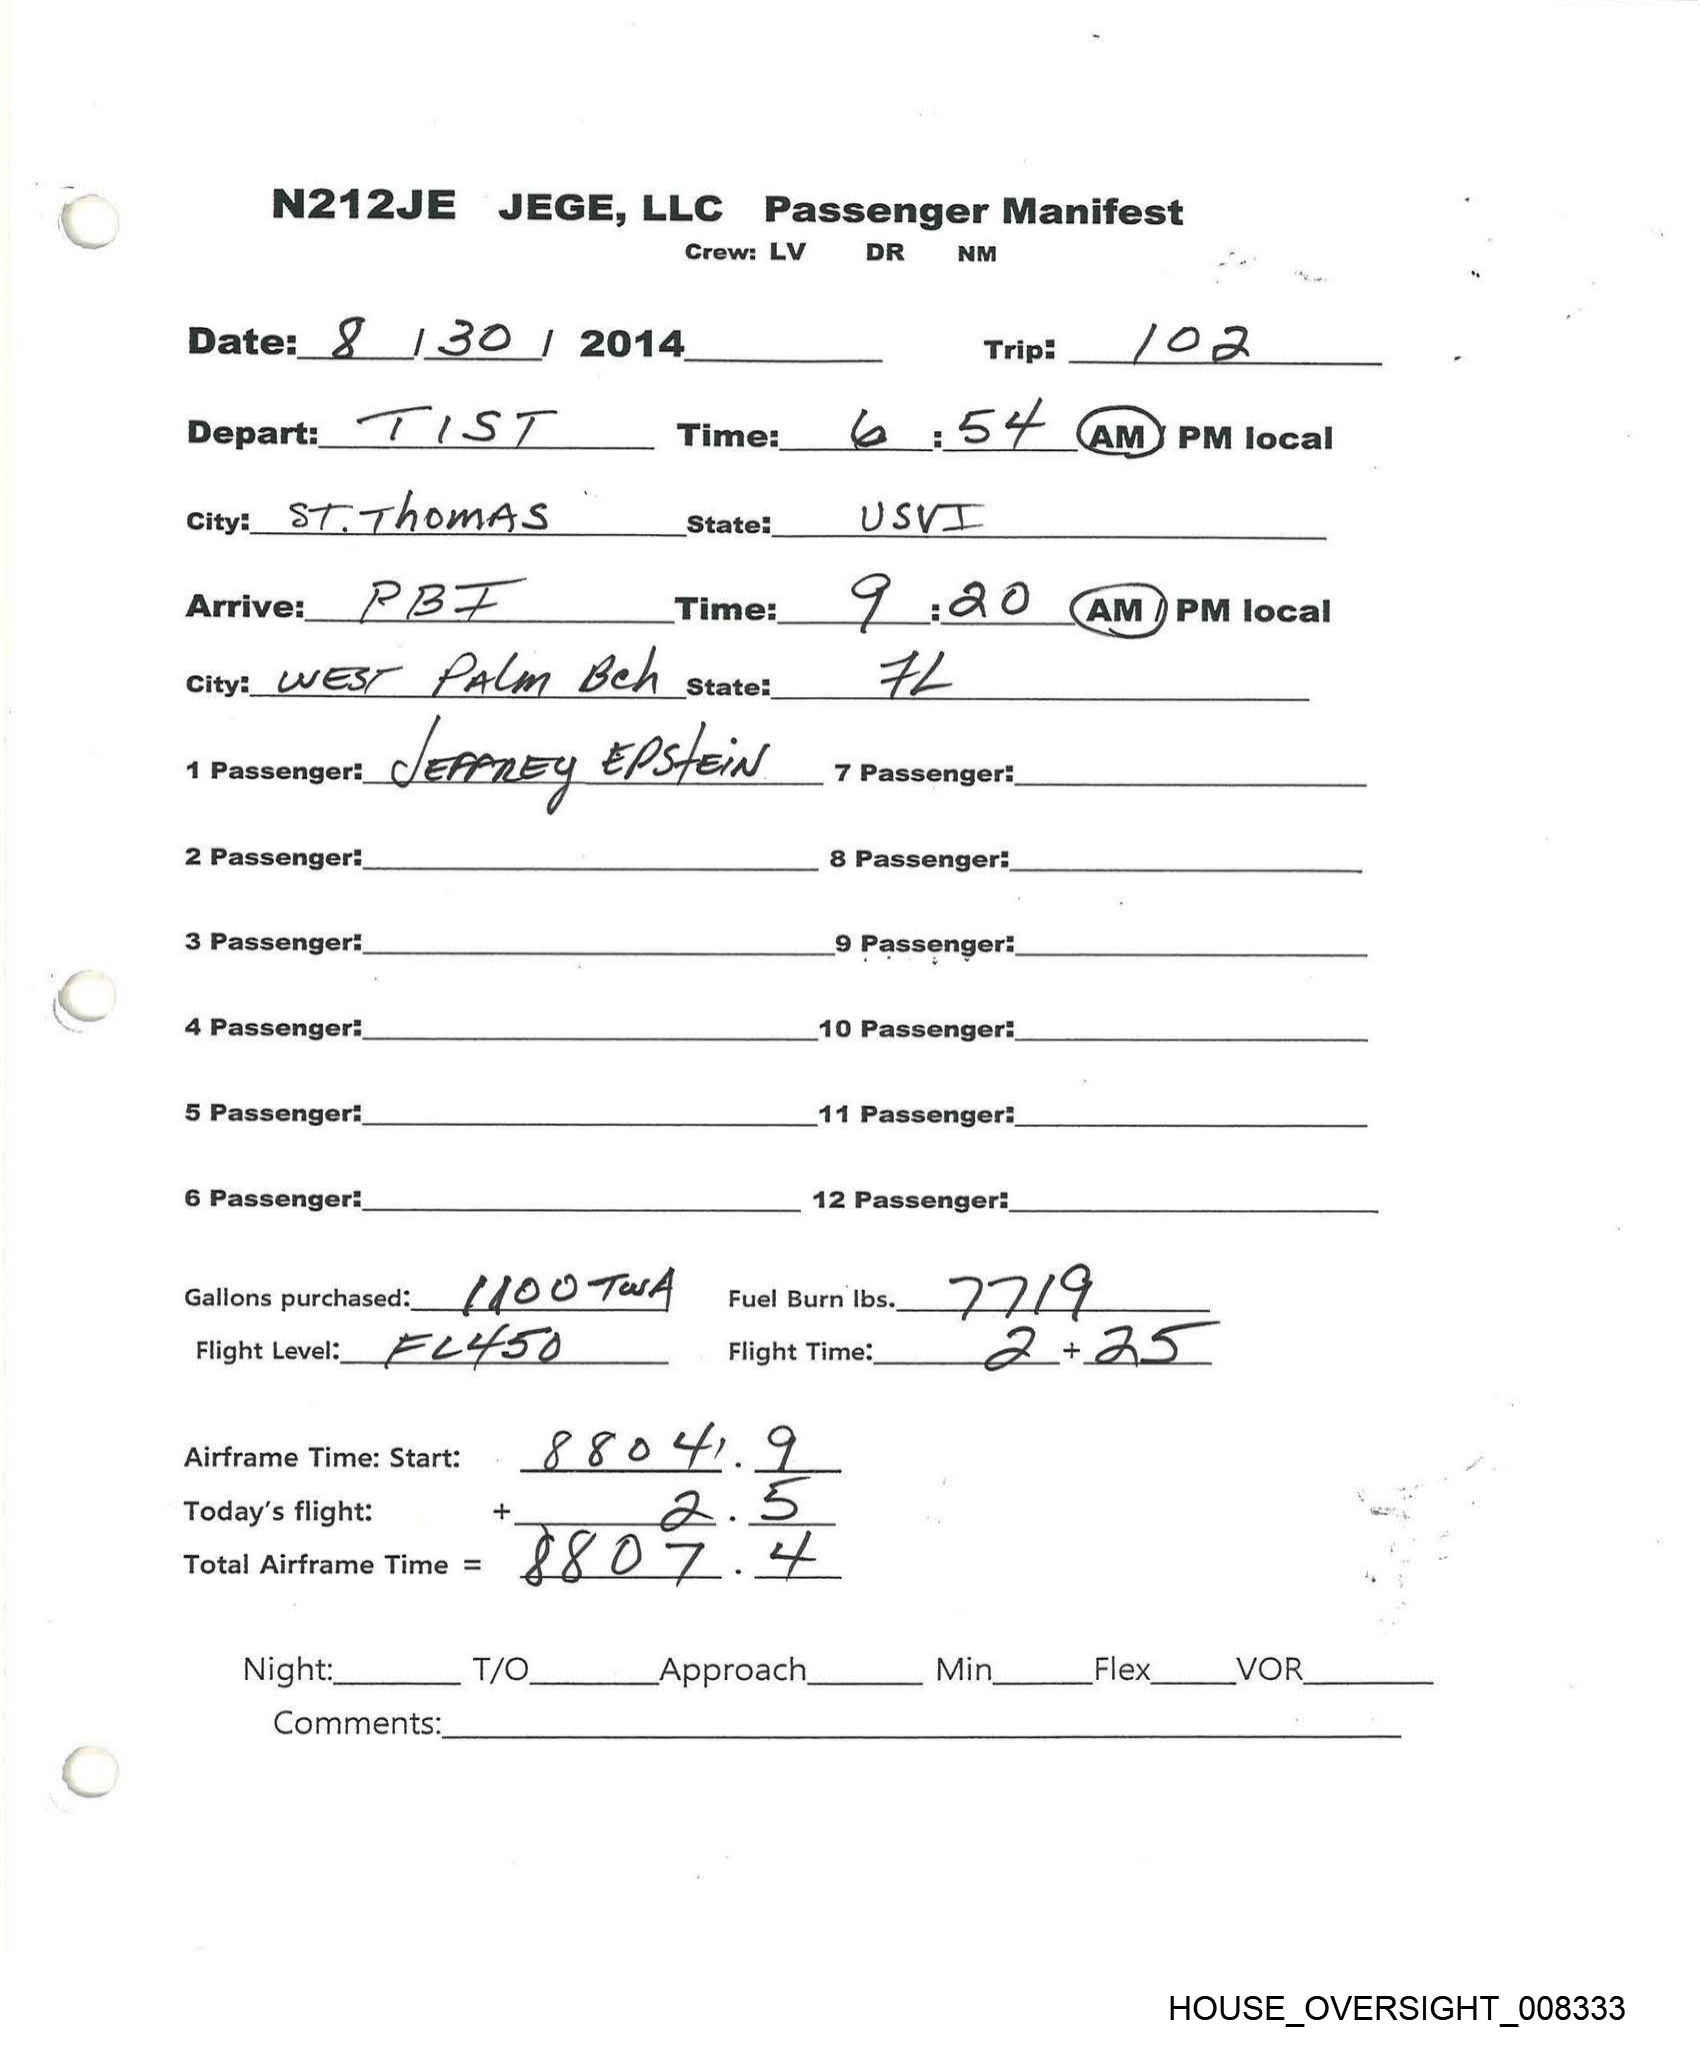 N212JE JEGE, LLC Passenger Manifest
Crew: LV DR NM
Date: 8 / 30 / 2014 Trip: 102
Depart: TIST Time: 6 : 54 AM/ PM local
City: ST. ThomAS State: USVI
Arrive: PBI Time: 9 : 20 AM / PM local
City: WEST PAlm Bch State: FL
1 Passenger: JEFFREY EPStEiN 7 Passenger:
2 Passenger: 8 Passenger:
3 Passenger: 9 Passenger:
4 Passenger: 10 Passenger:
5 Passenger: 11 Passenger:
6 Passenger: 12 Passenger:
Gallons purchased: 1100 TWA Fuel Burn lbs. 7719
Flight Level: FL450 Flight Time: 2 + 25
Airframe Time: Start: 8804 . 9
Today's flight: + 2 . 5
Total Airframe Time = 8807 . 4
Night: T/O Approach Min Flex VOR
Comments:
HOUSE_OVERSIGHT_008333